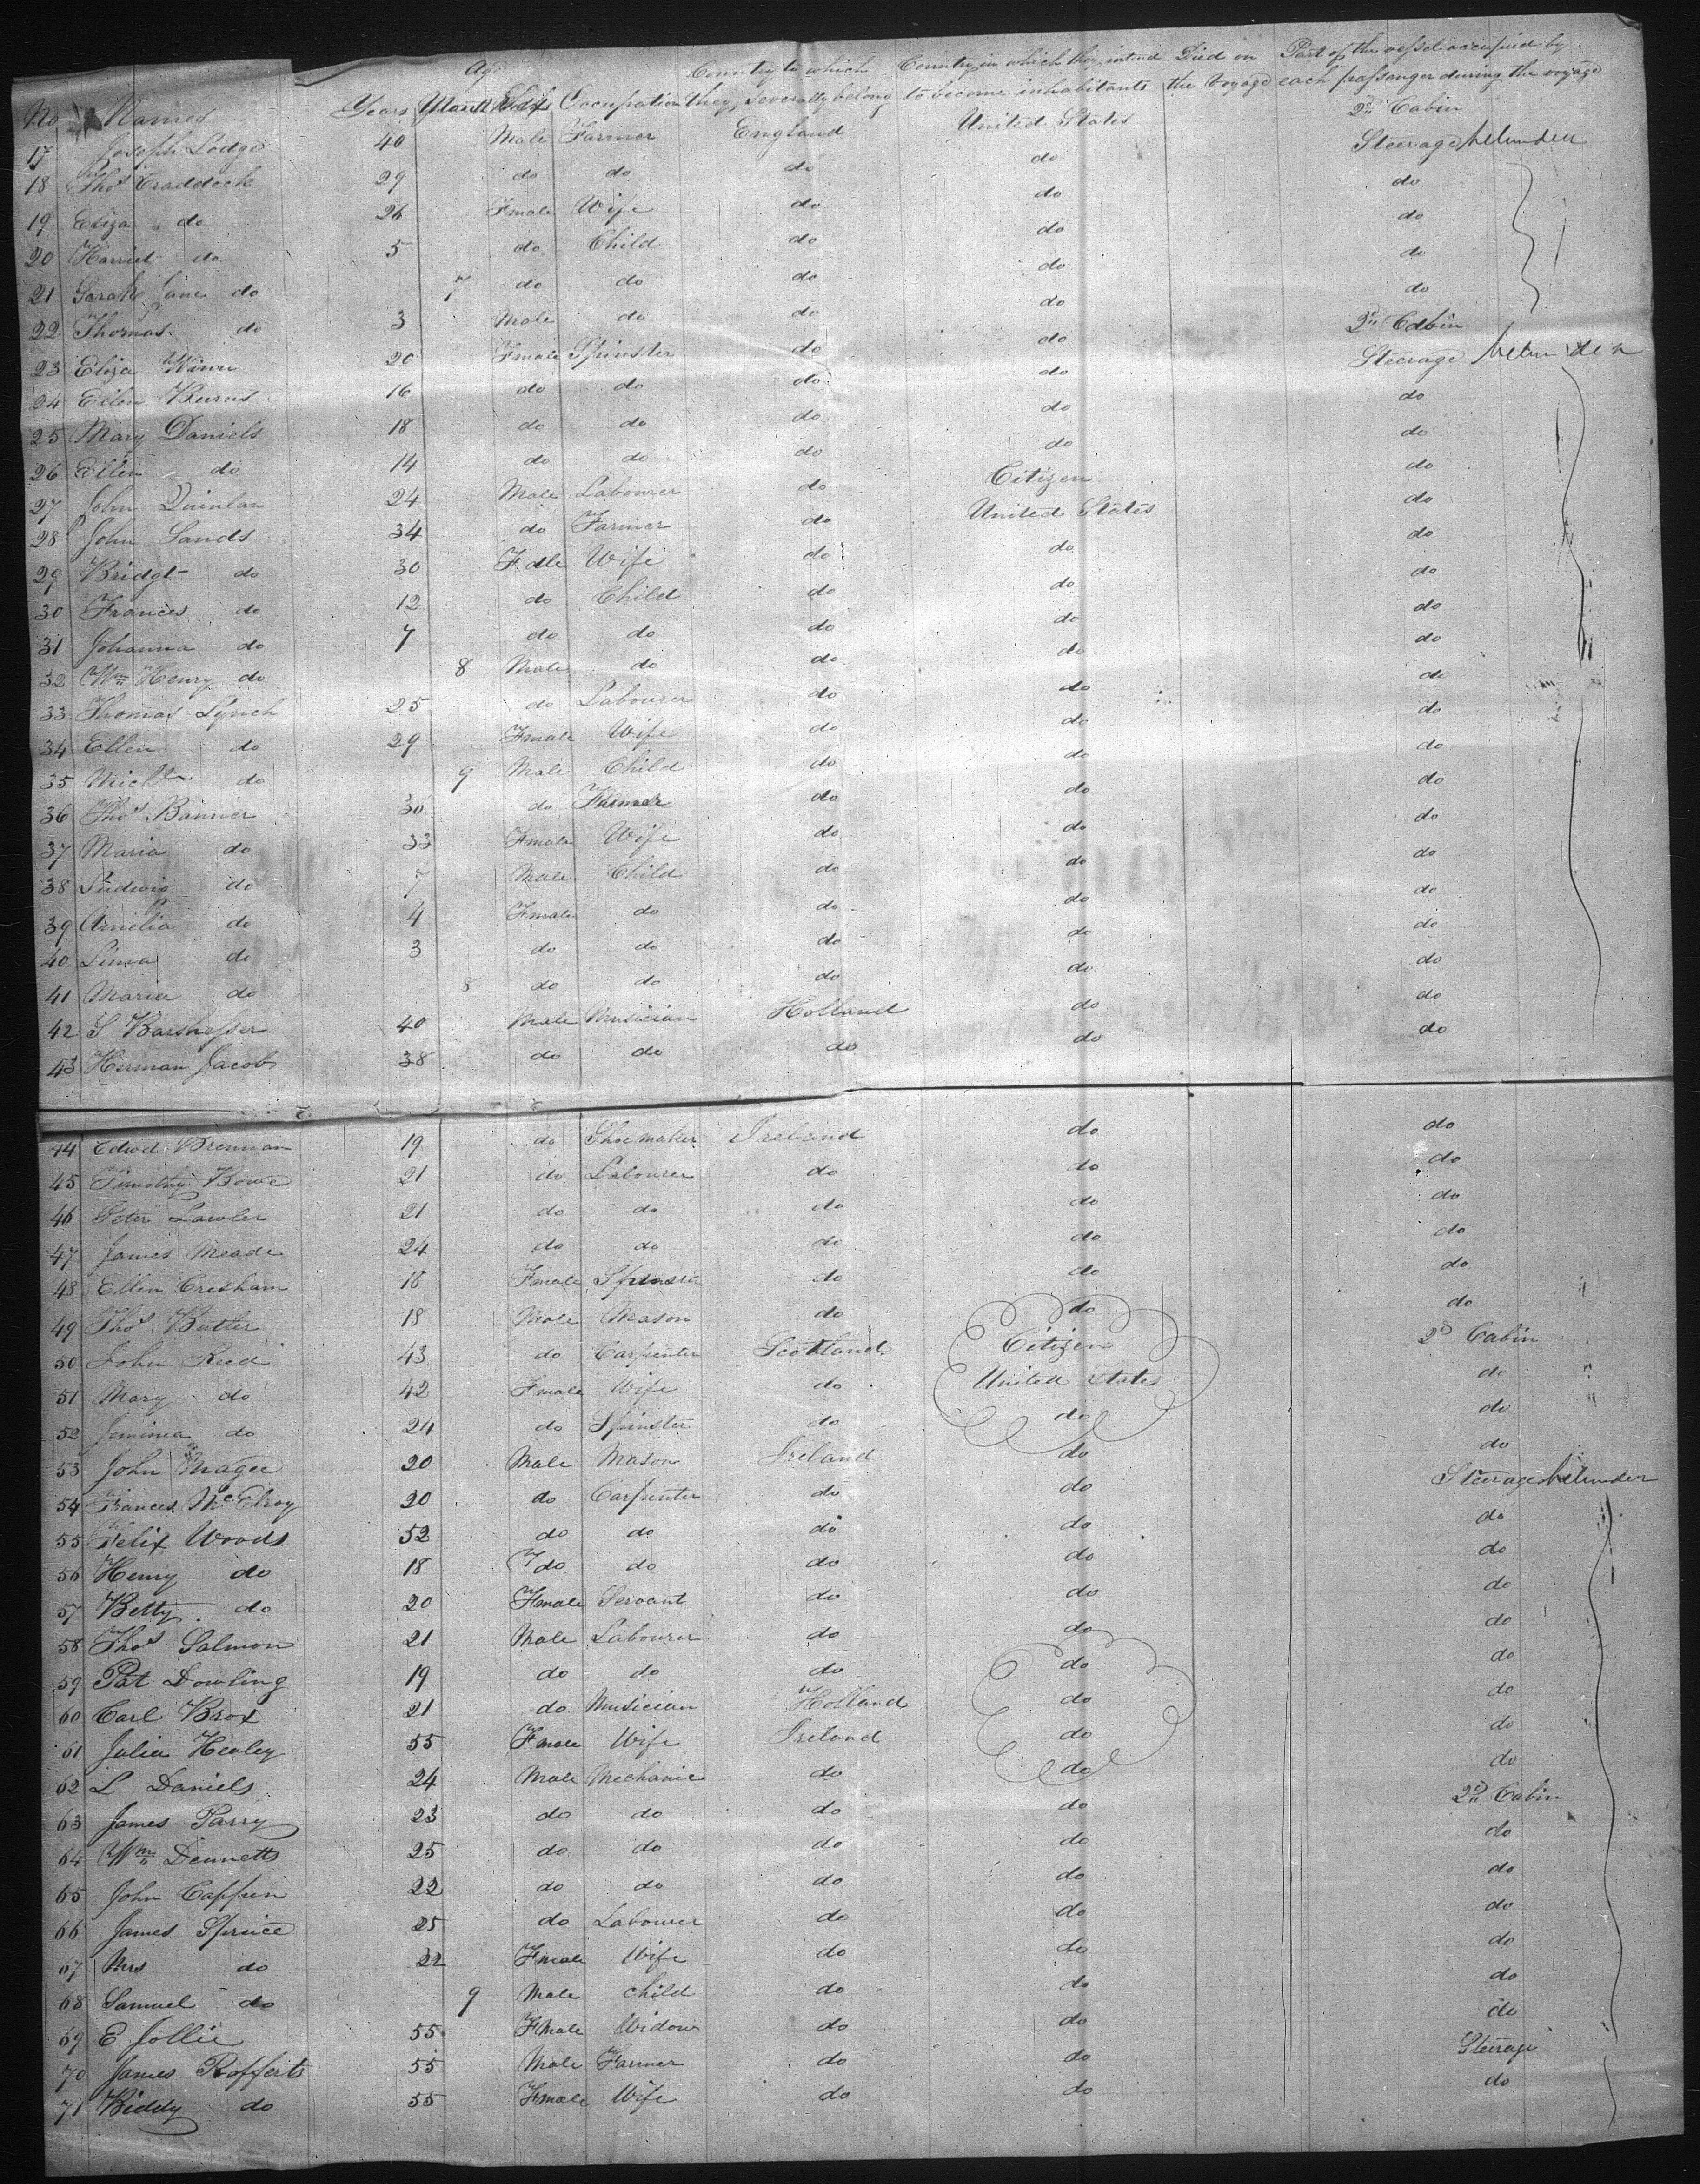 Age Country to which Country in which they intend Died on Part of the vessel occupied by
No Names Years Months Sex Occupation they severally belong to become inhabitants the voyage each passenger during the voyage
17 Joseph Lodge 40 Male Farmer England United States 2nd Cabin
18 Thos Craddock 29 do do do do Steerage
19 Eliza do 26 Fmale Wife do do do
20 Harriet do 5 do Child do do do
21 Sarah Jane do 7 do do do do do
22 Thomas do 3 Male do do do do
23 Eliza 20 Fmale Spinster do do 2nd Cabin
24 Ellen Burns 16 do do do do Steerage
25 Mary Daniels 18 do do do do do
26 Ellen do 14 do do do do do
27 John Quinlan 24 Male Labourer do Citizen do
28 John Sands 34 do Farmer do United States do
29 Bridgt do 30 F.dle Wife do do do
30 Frances do 12 do Child do do do
31 Johanna do 7 do do do do do
32 Wm Henry do 8 Male do do do do
33 Thomas Lynch 25 do Labourer do do do
34 Ellen do 29 Fmale Wife do do do
35 Michl do 9 Male Child do do do
36 Thos Banner 30 do Farmer do do do
37 Maria do 33 Fmale Wife do do do
38 Ludwig do 7 Male Child do do do
39 Amelia do 4 Fmale do do do do
40 do 3 do do do do do
41 Maria do 8 do do do do do
42 S 40 Male Musician Holland do do
43 Herman Jacobs 38 do do do do do
44 Edwd Brennan 19 do Shoemaker Ireland do do
45 Timothy Bowe 21 do Labourer do do do
46 Peter Lawler 21 do do do do do
47 James Meade 24 do do do do do
48 Ellen Cresham 18 Fmale Spinster do do do
49 Thos Butler 18 Male Mason do do do
50 John Reed 43 do Carpenter Scotland Citizen 2d Cabin
51 Mary do 42 Fmale Wife do United States do
52 Jemima do 24 do Spinster do do do
53 John Magee 20 Male Mason Ireland do do
54 Frances McElroy 20 do Carpenter do do Steerage
55 Felix Woods 52 do do do do do
56 Henry do 18 do do do do do
57 Betty do 20 Fmale Servant do do do
58 Thos Salmon 21 Male Labourer do do do
59 Pat Dowling 19 do do do do do
60 Carl Brox 21 do Musician Holland do do
61 Julia Healey 55 Fmale Wife Ireland do do
62 L Daniels 24 Male Mechanic do do do
63 James Parry 23 do do do do 2nd Cabin
64 Wm Dennetts 25 do do do do do
65 John 22 do do do do do
66 James Spruce 25 do Labourer do do do
67 Mrs do 22 Fmale Wife do do do
68 Samuel do 9 Male child do do do
69 E Jollie 55 Fmale Widow do do do
70 James Rofferts 55 Male Farmer do do Steerage
71 Biddy do 55 Fmale Wife do do do